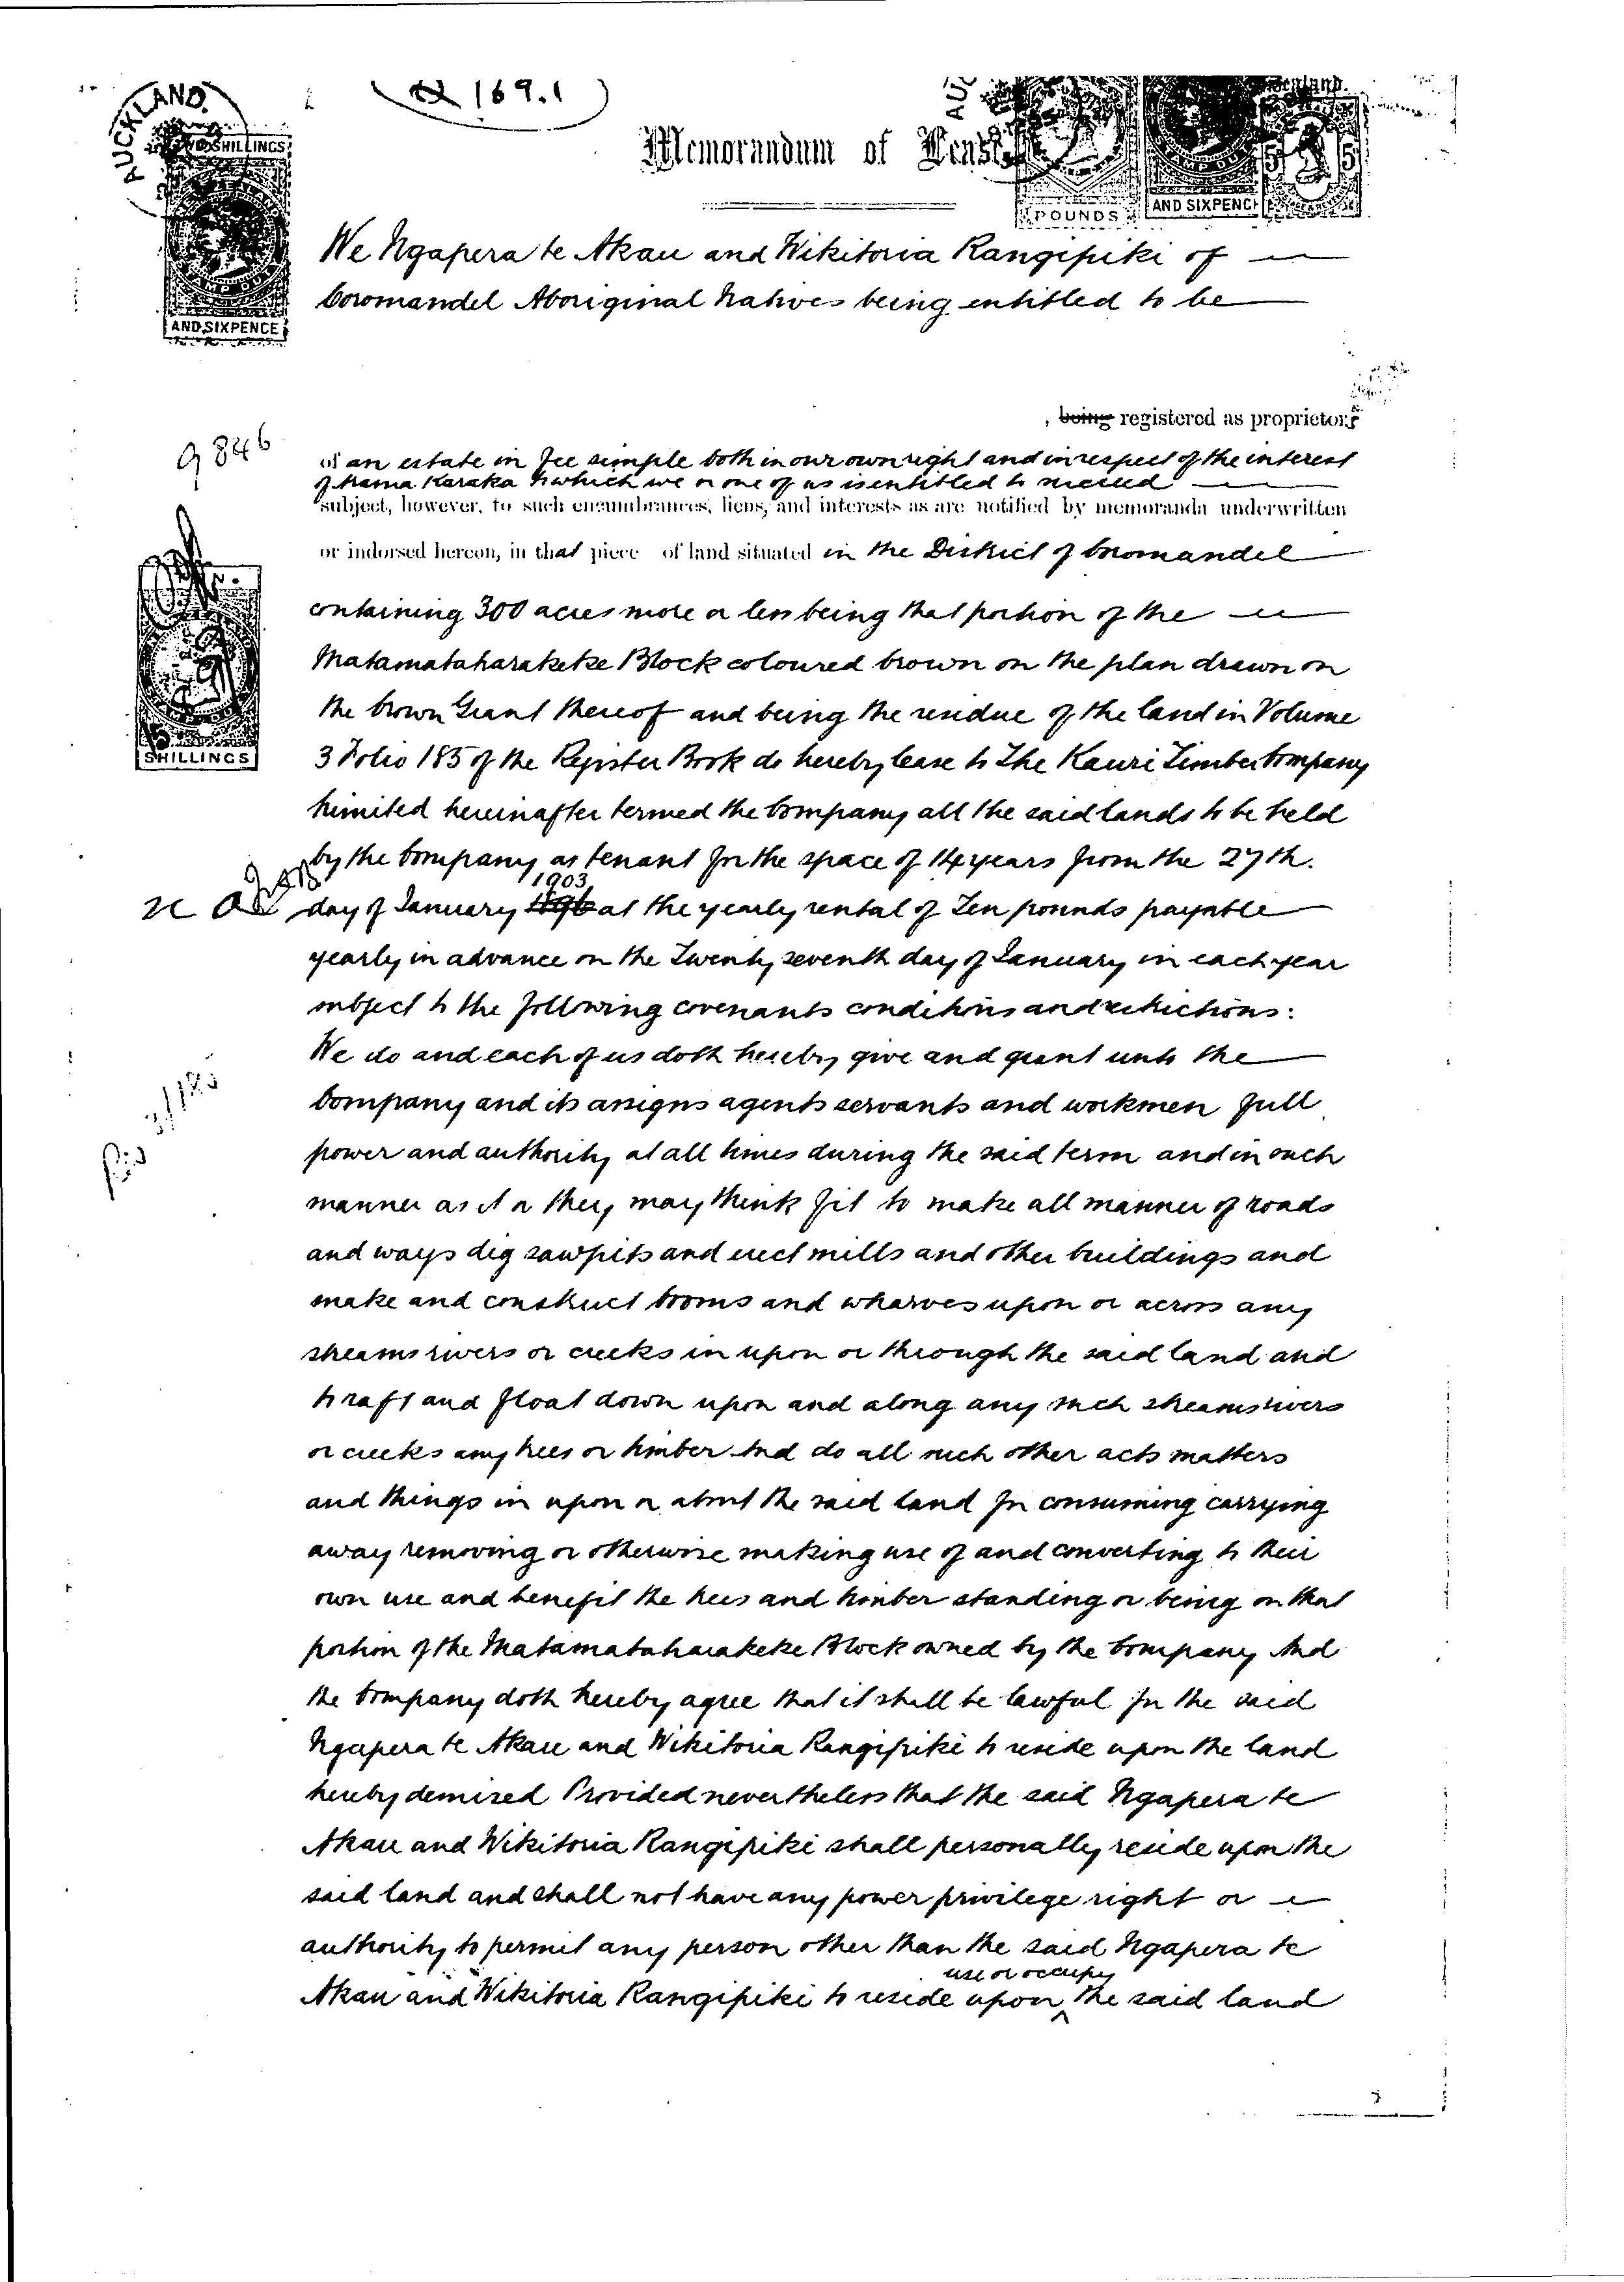 169.1
AUCKLAND.
SHILLINGS
AND SIXPENCE
Memorandum of Lease
POUNDS
AND SIXPENCE
We Ngapera te Akau and Wikitoria Rangipiki of
Coromandel Aboriginal Natives being entitled to be
, being registered as proprietors
9846
of an estate in fee simple both in our own right and in respect of the interest
of Hama Karaka to which we or one of us is entitled to succeed
subject, however, to such encumbrances, liens, and interests as are notified by memoranda underwritten
or indorsed hereon, in that piece of land situated in the District of Coromandel
containing 300 acres more or less being that portion of the
Matamataharakeke Block coloured brown on the plan drawn on
the Crown Grant thereof and being the residue of the land in Volume
3 Folio 185 of the Register Book do hereby lease to The Kauri Timber Company
SHILLINGS
Limited hereinafter termed the Company all the said lands to be held
by the Company as tenant for the space of 14 years from the 27th.
day of January 1896 1903 at the yearly rental of Ten pounds payable
yearly in advance on the Twenty seventh day of January in each year
subject to the following covenants conditions and restrictions:
We do and each of us doth hereby give and grant unto the
Company and its assigns agents servants and workmen full
power and authority at all times during the said term and in such
manner as it or they may think fit to make all manner of roads
and ways dig sawpits and erect mills and other buildings and
make and construct booms and wharves upon or across any
streams rivers or creeks in upon or through the said land and
to raft and float down upon and along any such streams rivers
or creeks any trees or timber And do all such other acts matters
and things in upon or about the said land for consuming carrying
away removing or otherwise making use of and converting to their
own use and benefit the trees and timber standing or being on that
portion of the Matamataharakeke Block owned by the Company And
the Company doth hereby agree that it shall be lawful for the said
Ngapera te Akau and Wikitoria Rangipiki to reside upon the land
hereby demised Provided nevertheless that the said Ngapera te
Akau and Wikitoria Rangipiki shall personally reside upon the
said land and shall not have any power privilege right or
authority to permit any person other than the said Ngapera te
Akau and Wikitoria Rangipiki to reside upon use or occupy the said land